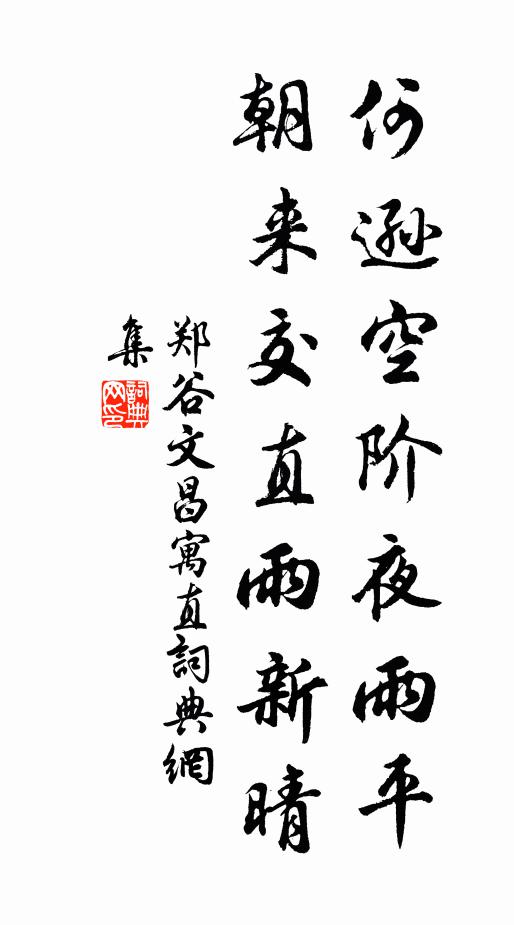 何逊空阶夜雨平
朝来交直雨新晴
郑谷文昌寓直詞典網
集
詞典
网印